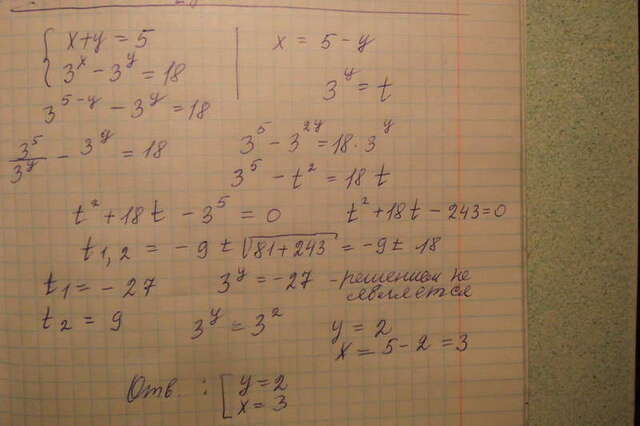 x+y=5
3^x-3^y=18
x = 5-y
3^y=t
3^{5-y} - 3^y=18
3^5/3^y - 3^y = 18
3^5-3^{2y}=18·3^y
3^5-t^2=18t
t^2+18t-3^5=0
t^2+18t-243=0
t_{1,2} = -9±√(81+243) = -9± 18
t_1=-27
3^y=-27 - решением не
является
t_2=9
3^y=3^2
y=2
x=5-2=3
Отв. :
y=2
x=3